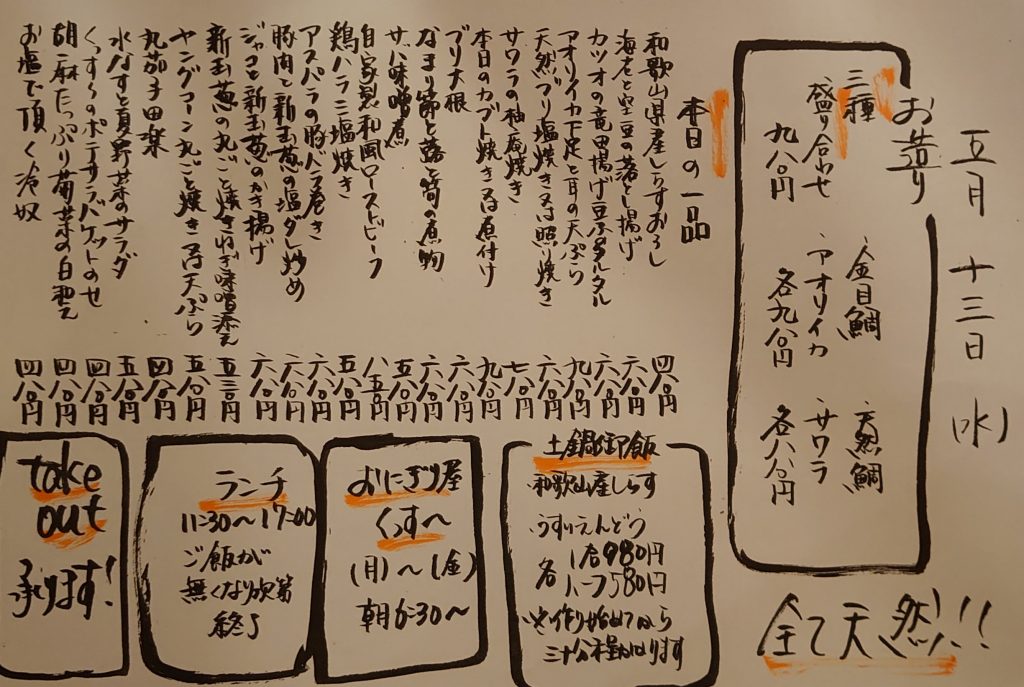 五月 十三日 (水)
お造り
三種
盛り合わせ
九八〇円
金目鯛
アオリイカ
各九八〇円
天然鯛
サワラ
各八八〇円
全て天然!!
本日の一品
和歌山県産しらすおろし 四八〇円
海老と空豆の落とし揚げ 六八〇円
カツオの竜田揚げ豆ふタルタル 六八〇円
アオリイカ下足と耳の天ぷら 九八〇円
天然ブリ塩焼き又は照り焼き 六八〇円
サワラの柚庵焼き 七八〇円
本日のカブト焼き又は煮付け 九八〇円
ブリ大根 六八〇円
なまり節と蕗と筍の煮物 六八〇円
サバ味噌煮 五八〇円
自家製和風ローストビーフ 八五〇円
鶏ハラミ塩焼き 五八〇円
アスパラの豚バラ巻き 六八〇円
豚肉と新玉葱の塩タレ炒め 六八〇円
ジャコと新玉葱のかき揚げ 六八〇円
新玉葱の丸ごと焼きねぎ味噌添え 五三〇円
ヤングコーン丸ごと焼き又は天ぷら 五八〇円
丸茄子田楽 四八〇円
水なすと夏野菜のサラダ 五八〇円
くっす〜のポテサラバケットのせ 四八〇円
胡麻たっぷり菊菜の白和え 四八〇円
お塩で頂く冷奴 四八〇円
土鍋御飯
和歌山産しらす
うすいえんどう
各 1合980円
ハーフ580円
※作り始めてから
三十分程掛かります
おにぎり屋
くっす〜
(月)〜(金)
朝6:30〜
ランチ
11:30〜17:00
ご飯が
無くなり次第
終了
take
out
承ります!